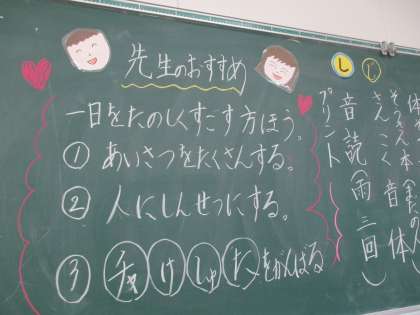 先生のおすすめ
一日をたのしくすごす方ほう。
① あいさつをたくさんする。
② 人にしんせつにする。
③ チャ け しゅ た をがんばる
し た
プリント
音読(雨 三回)
さんこく 音 体